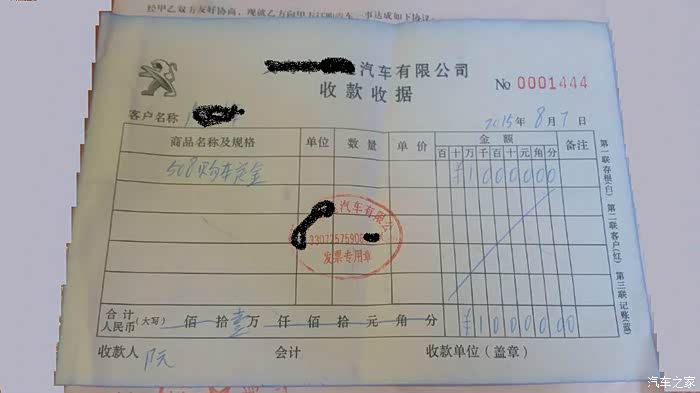 经甲乙双方友好协商，现就乙方向甲方订购汽车一事达成如下协议
汽车有限公司
收款收据
No 0001444
客户名称
2015年8月7日
商品名称及规格 单位 数量 单价 金额 备注
百 十 万 千 百 十 元 角 分
508购车定金 ¥1000000
汽车有限公
33072575908
发票专用章
合计人民币(大写) 佰 拾 壹万 仟 佰 拾 元 角 分 ¥1000000
收款人 会计 收款单位（盖章）
第一联存根(白) 第二联客户(红) 第三联记账(蓝)
汽车之家